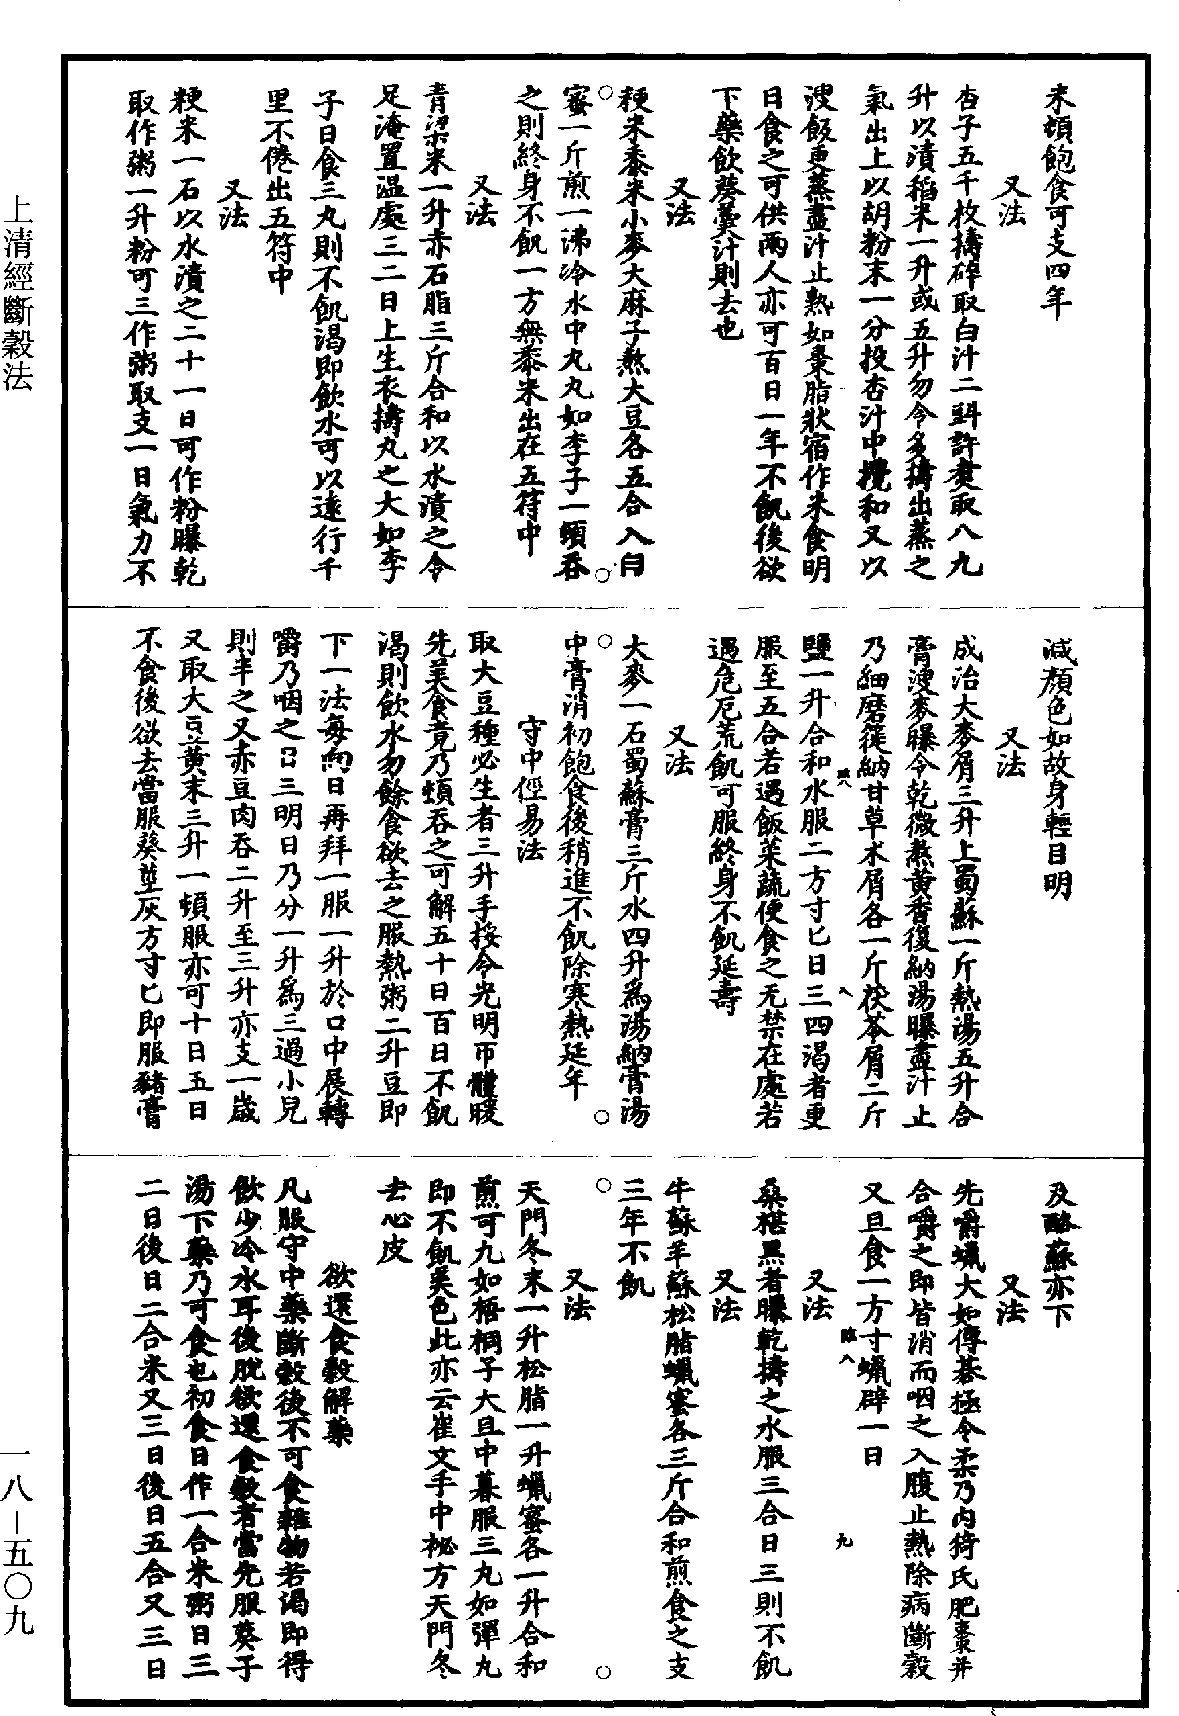 末頓飽食可支四年
又法
杏子五千枚擣碎取白汁二㪷許煑取八九
升以漬稻米一升或五升勿令多擣出蒸之
氣出上以胡粉末一分投杏汁中攪和又以
溲飯更蒸盡汁止熟如棗脂狀宿作米食明
日食之可供兩人亦可百日一年不飢後欲
下藥飲葵羹汁則去也
又法
粳米黍米小麥大麻子熬大豆各五合入白
蜜一斤煎一沸冷水中丸丸如李子一頓吞
之則終身不飢一方無黍米出在五符中
又法
青粱米一升赤石脂三斤合和以水漬之令
足淹置温處三二日上生衣擣丸之大如李
子日食三丸則不飢渴即飲水可以遠行千
里不倦出五符中
又法
粳米一石以水漬之二十一日可作粉曝乾
取作粥一升粉可三作粥取支一日氣力不
減顏色如故身輕目明
又法
成治大麥屑三升上蜀蘇一斤熱湯五升合
膏溲麥曝令乾微熬黄香復納湯曝盡汁止
乃細磨簁納甘草朮屑各一斤茯苓屑二斤
鹽一升合和水服二方寸匕日三四渴者更
服至五合若遇飯菜蔬便食之无禁在處若
遇危厄荒飢可服終身不飢延壽
又法
大麥一石蜀蘇膏三斤水四升爲湯納膏湯
中膏消初飽食後稍進不飢除寒熱延年
守中俓易法
取大豆種必生者三升手挼令光明帀體暖
先美食竟乃頓吞之可解五十日百日不飢
渴則飲水勿餘食欲去之服熱粥二升豆即
下一法每向日再拜一服一升於口中展轉
嚼乃咽之日三明日乃分一升爲三過小兒
則半之又赤豆肉吞二升至三升亦支一歲
又取大豆黄末三升一頓服亦可十日五日
不食後欲去當服葵莖灰方寸匕即服豬膏
及酪蘇亦下
又法
先嚼蠟大如愽碁極令柔乃内猗氏肥棗并
合嚼之即皆消而咽之入腹止熱除病斷穀
又旦食一方寸蠟辟一日
又法
桑椹黑者曝乾擣之水服三合日三則不飢
又法
牛蘇羊蘇松脂蠟蜜各三斤合和煎食之支
三年不飢
又法
天門冬末一升松脂一升蠟蜜各一升合和
煎可丸如梧桐子大旦中暮服三丸如彈丸
即不飢美色此亦云崔文手中祕方天門冬
去心皮
欲還食穀解藥
凡服守中藥斷穀後不可食雜物若渴即得
飲少冷水耳後脫欲還食穀者當先服葵子
湯下藥乃可食也初食日作一合米粥日三
二日後日二合米又三日後日五合又三日
上清經斷穀法
一八―五〇九